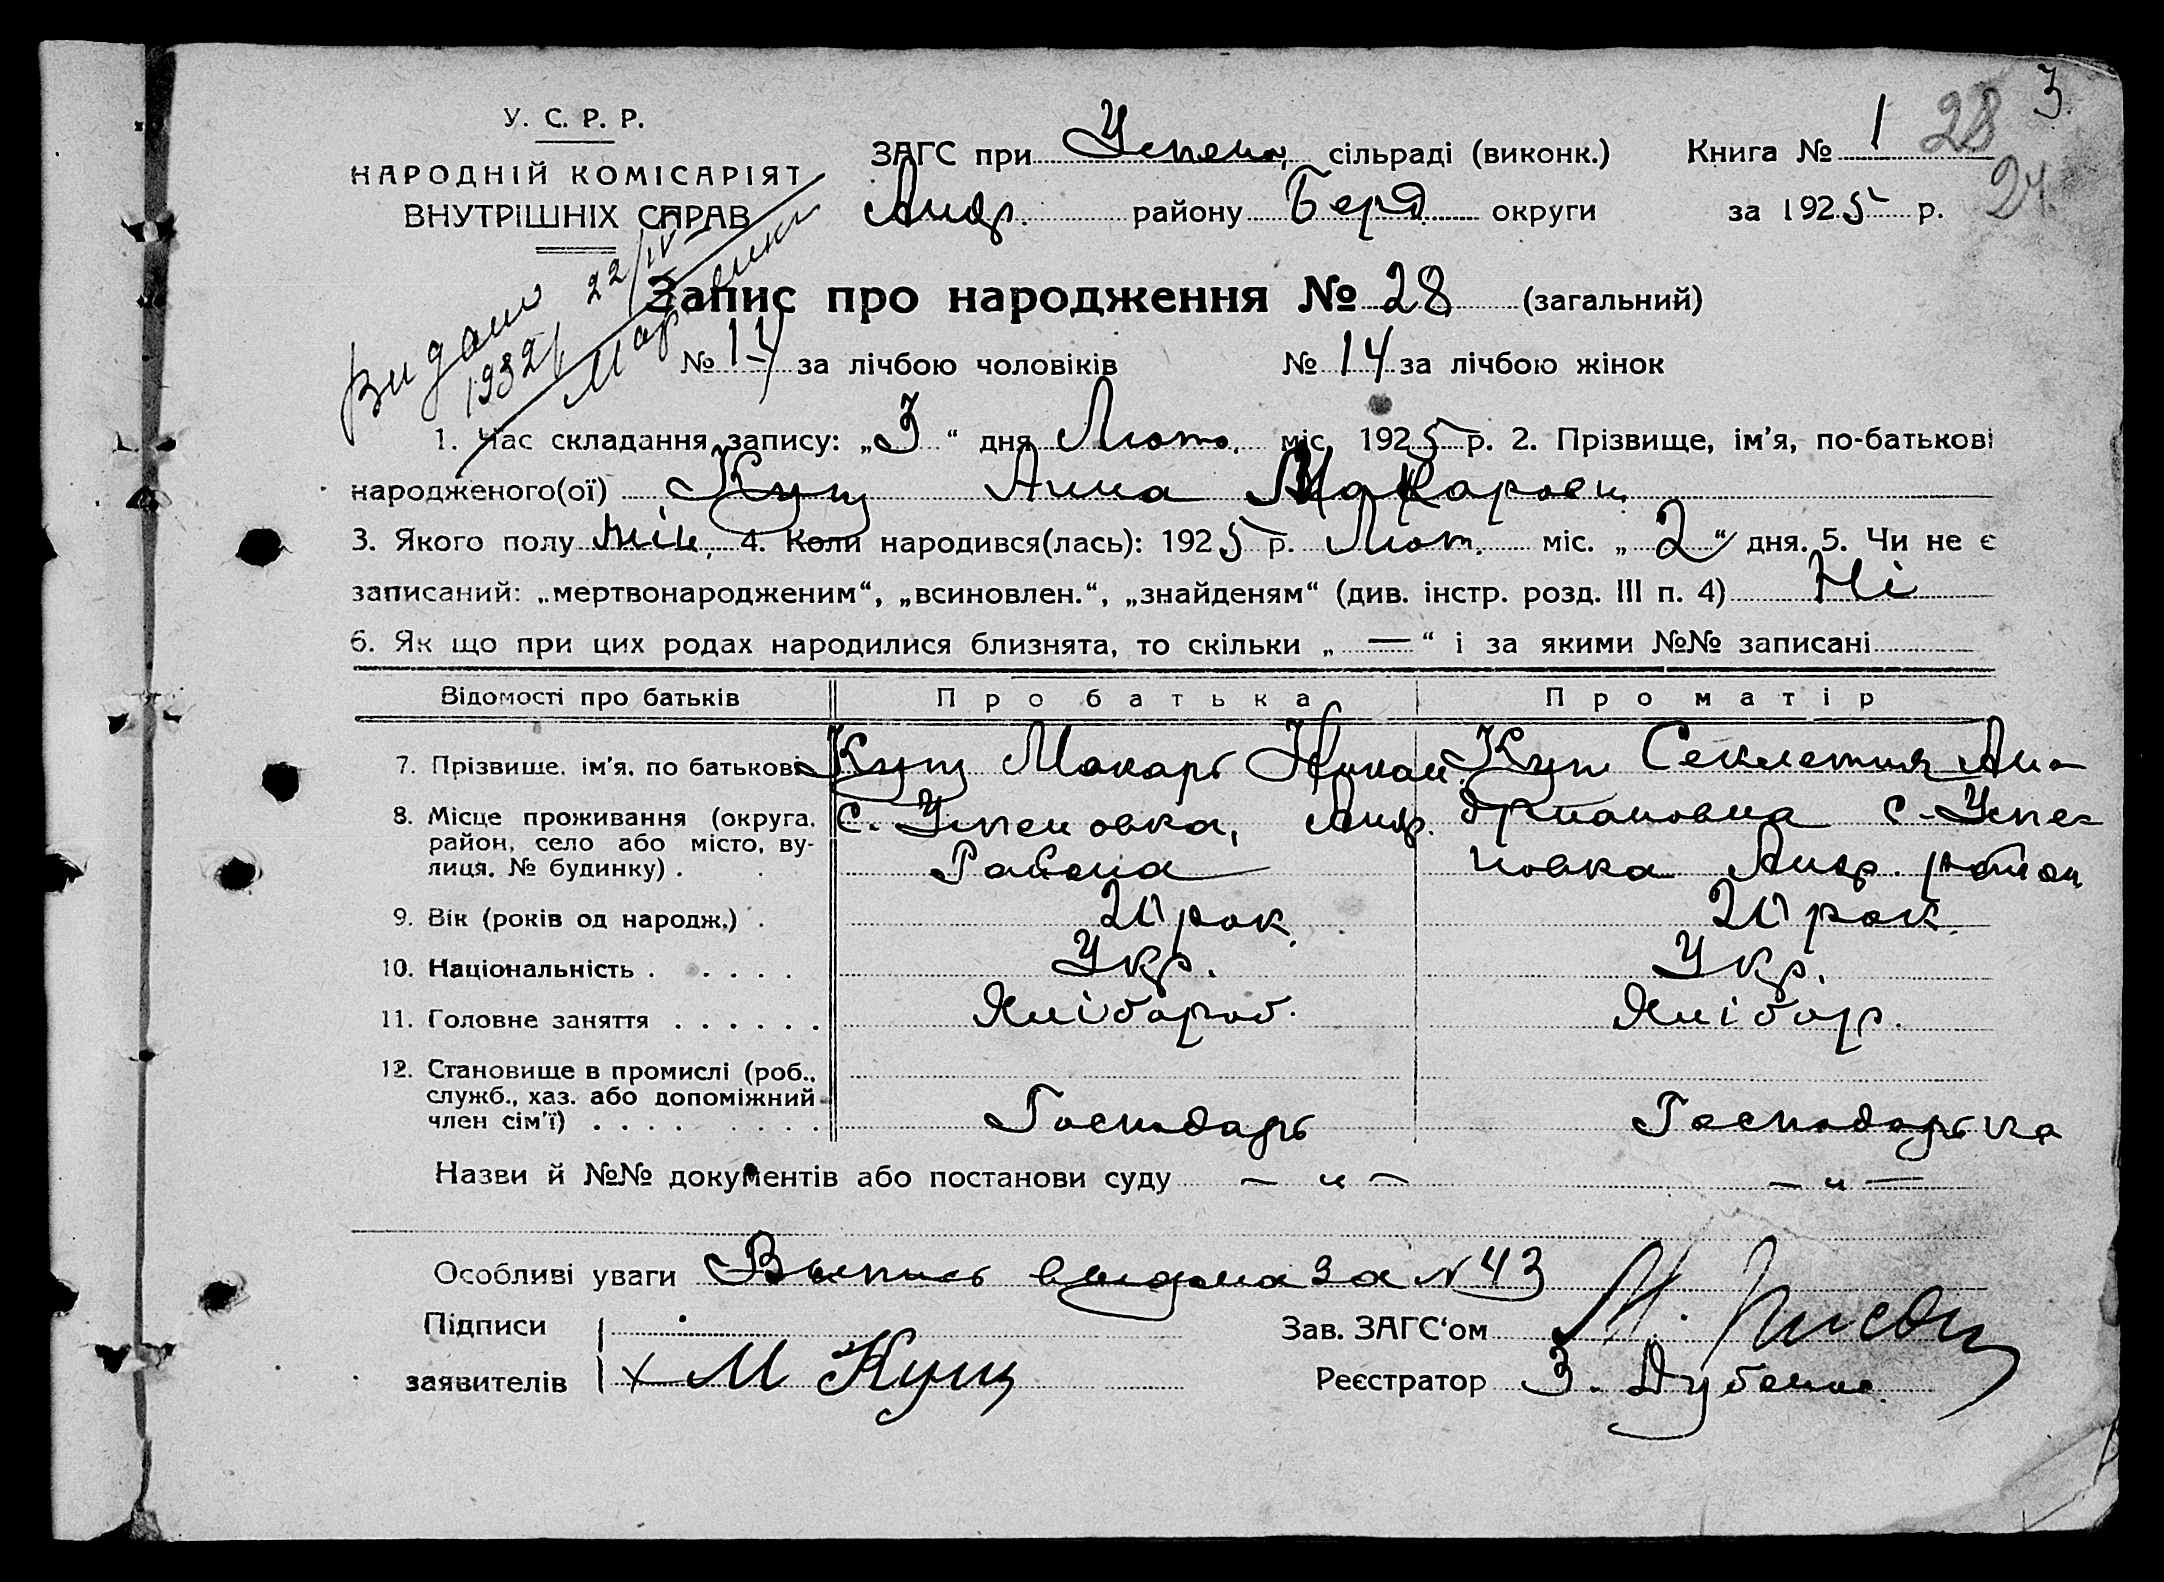 3
28
24
У. С. Р. Р.
НАРОДНІЙ КОМІСАРІЯТ
ВНУТРІШНІХ СПРАВ
ЗАГС при Успенов. сільраді (виконк.) Книга № 1
Андр. району Берд. округи за 1925 р.
Видано 22/IV
1932
Запис про народження № 28 (загальний)
№ 14 за лічбою чоловіків № 14 за лічбою жінок
1. Час складання запису: „3“ дня Люто. міс. 1925 р. 2. Прізвище, ім'я, по-батькові
народженого(ої) Кущ Анна Макаровн.
3. Якого полу жін. 4. Коли народився(лась): 1925 р. Лют. міс. „2“ дня. 5. Чи не є
записаний: „мертвонародженим“, „всиновлен.“, „знайденям“ (див. інстр. розд. III п. 4) Ні
6. Як що при цих родах народилися близнята, то скільки „—“ і за якими №№ записані
Відомості про батьків Про батька Про матір
7. Прізвище, ім'я, по батькові Кущ Макарь Кущ Секлетия Ан-
8. Місце проживання (округа, с. Успеновка, Андр. дриановна с. Успе-
район, село або місто, ву- Района новка Андр. район
лиця, № будинку) .
9. Вік (років од народж.) . 20 рок. 20 рок.
10. Національність . . . . . Укр. Укр.
11. Головне заняття . . . . . . Хлібороб. Хлібор.
12. Становище в промислі (роб.,
служб., хаз. або допоміжний
член сім'ї) . . . . . . . . Господарь Господарька
Назви й №№ документів або постанови суду — „ — — „ —
Особливі уваги Выпись выдана за № 43
Підписи
заявителів М Кущ
Зав. ЗАГС'ом М.
Реєстратор З.